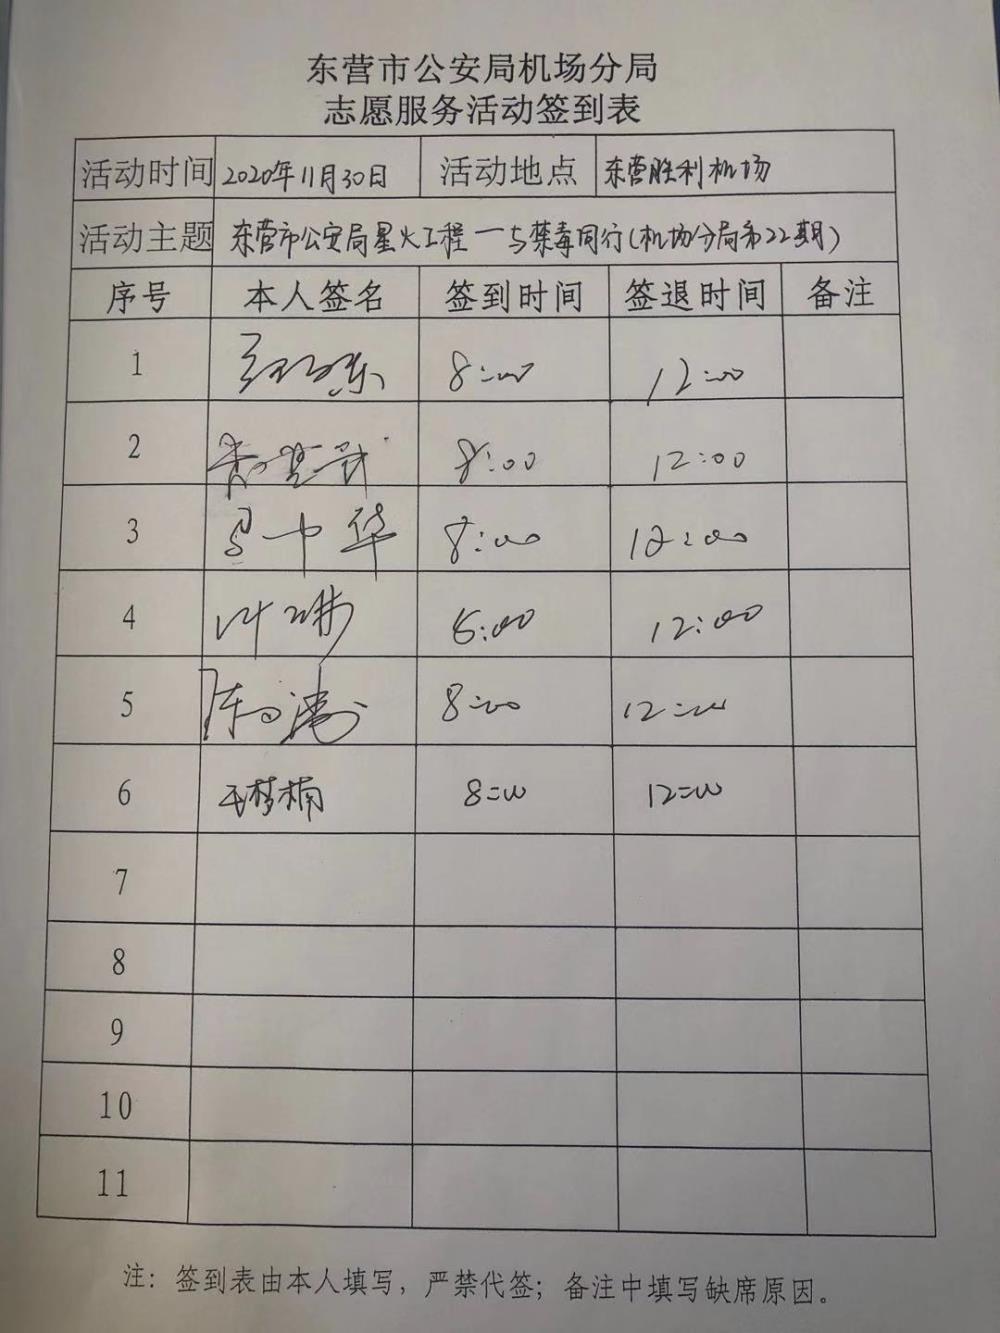 东营市公安局机场分局
志愿服务活动签到表
活动时间 2020年11月30日 活动地点 东营胜利机场
活动主题 东营市公安局星火工程—与禁毒同行(机场分局第22期)
序号 本人签名 签到时间 签退时间 备注
1 8:00 12:00
2 8:00 12:00
3 马中华 8:00 12:00
4 12:00
5 陈 8:00 12:00
6 王梦楠 8:00 12:00
7
8
9
10
11
注：签到表由本人填写，严禁代签；备注中填写缺席原因。